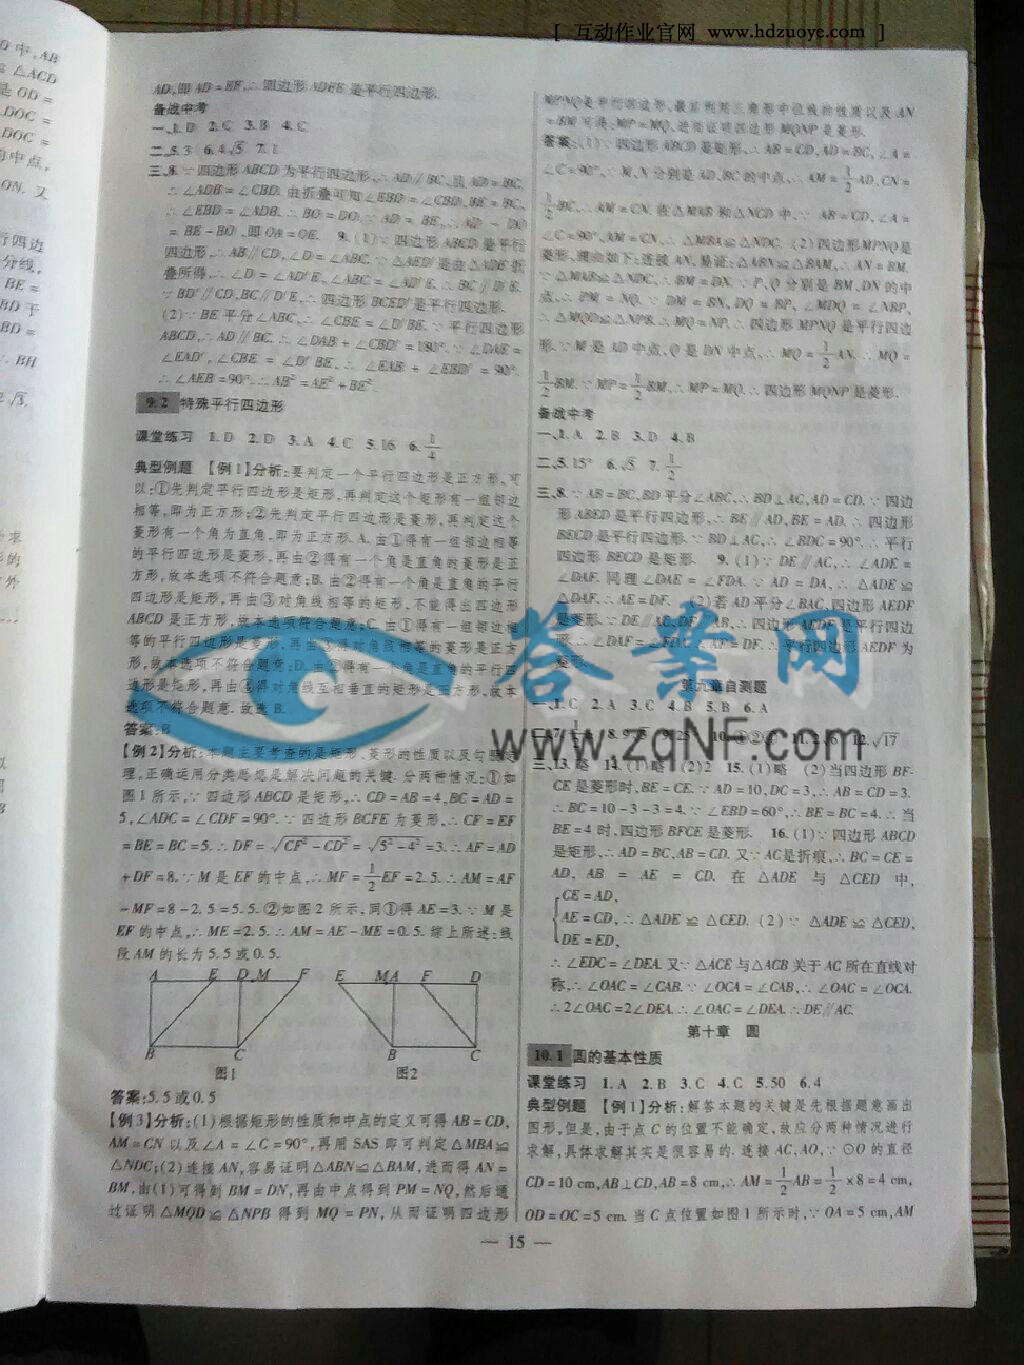 [ 互动作业官网 www.hdzuoye.com ]
中,AB
△ACD
是 OD =
DOC =
DOC =
的中点,
ON. 又
行四边
分线,
BE =
BD 于
BD =
∵ BH
2√3,
AD,即 AD = EF,∴四边形 ADFE 是平行四边形.
备战中考
一、1.D 2.C 3.B 4.C
二、5.3 6.4√5 7.1
三、8.∵四边形 ABCD 为平行四边形,∴AD∥BC,且 AD=BC,
∴∠ADB = ∠CBD. 由折叠可知∠EBD = ∠CBD,BE = BC,
∴∠EBD = ∠ADB,∴BO = DO,∵AD = BE,∴AD - DO
= BE - BO,即 OA = OE. 9.(1)∵四边形 ABCD 是平行
四边形,∴AB∥CD,∠D = ∠ABC.∵△AED′是由△ADE 折
叠所得,∴∠D = ∠AD′E,∠ABC = ∠AD′E,∴BC∥D′E.
∵BD′∥CD,BC∥D′E,∴四边形 BCED′是平行四边形.
(2)∵BE 平分∠ABC,∴∠CBE = ∠D′BE.∵平行四边形
ABCD,∴AD∥BC.∴∠DAB + ∠CBD′ = 180°.∵∠DAE =
∠EAD′,∠CBE = ∠D′BE,∴∠EAB + ∠EBD′ = 90°.
∴∠AEB = 90°.∴AB² = AE² + BE².
9.2 特殊平行四边形
课堂练习 1.D 2.D 3.A 4.C 5.16 6.1/4
典型例题 【例1】分析:要判定一个平行四边形是正方形,可
以:①先判定平行四边形是矩形,再判定这个矩形有一组邻边
相等,即为正方形;②先判定平行四边形是菱形,再判定这个
菱形有一个角为直角,即为正方形. A. 由①得有一组邻边相等
的平行四边形是菱形,再由②得有一个角是直角的菱形是正
方形,故本选项不符合题意;B. 由②得有一个角是直角的平行
四边形是矩形,再由③对角线相等的矩形,不能得出四边形
ABCD 是正方形,故本选项符合题意;C. 由①得有一组邻边相
等的平行四边形是菱形,再由③对角线相等的菱形是正方
形,故本选项不符合题意;D. 由②得有一个角是直角的平行四
边形是矩形,再由④得对角线互相垂直的矩形是正方形,故本
选项不符合题意. 故选 B.
答案:B
【例2】分析:本题主要考查的是矩形、菱形的性质以及勾股定
理,正确运用分类思想是解决问题的关键. 分两种情况:①如
图1所示,∵四边形 ABCD 是矩形,∴CD = AB = 4,BC = AD =
5,∠ADC = ∠CDF = 90°.∵四边形 BCFE 为菱形,∴CF = EF
= BE = BC = 5.∴DF = √(CF² - CD²) = √(5² - 4²) = 3.∴AF = AD
+ DF = 8.∵M 是 EF 的中点,∴MF = 1/2 EF = 2.5.∴AM = AF
- MF = 8 - 2.5 = 5.5. ②如图2所示,同①得 AE = 3.∵M 是
EF 的中点,∴ME = 2.5.∴AM = AE - ME = 0.5. 综上所述:线
段 AM 的长为 5.5 或 0.5.
A E D M F E M A F D
B C B C
图1 图2
答案:5.5 或 0.5
【例3】分析:(1)根据矩形的性质和中点的定义可得 AB = CD,
AM = CN 以及∠A = ∠C = 90°,再用 SAS 即可判定△MBA≌
△NDC;(2)连接 AN,容易证明△ABN≌△BAM,进而得 AN =
BM,由(1)可得到 BM = DN,再由中点得到 PM = NQ,然后通
过证明△MQD≌△NPB 得到 MQ = PN,从而证明四边形
MPNQ 是平行四边形,最后利用三角形中位线的性质以及 AN
= BM 可得,MP = MQ,进而证明四边形 MQNP 是菱形.
答案:(1)∵四边形 ABCD 是矩形,∴AB = CD,AD = BC,∠A =
∠C = 90°.∵M、N 分别是 AD,BC 的中点,∴AM = 1/2 AD,CN =
1/2 BC,∴AM = CN. 在△MAB 和△NCD 中,∵AB = CD,∠A =
∠C = 90°,AM = CN,∴△MBA≌△NDC. (2)四边形 MPNQ 是
菱形,理由如下:连接 AN,易证:△ABN≌△BAM,∴AN = BM.
∵△MAB≌△NCD,∴BM = DN.∵P、Q 分别是 BM、DN 的中
点,∴PM = NQ.∵DM = BN,DQ = BP,∠MDQ = ∠NBP,
∴△MQD≌△NPB.∴MQ = NP.∴四边形 MPNQ 是平行四边
形.∵M 是 AD 中点,Q 是 DN 中点,∴MQ = 1/2 AN.∴MQ =
1/2 BM.∵MP = 1/2 BM,∴MP = MQ.∴四边形 MQNP 是菱形.
备战中考
一、1.A 2.B 3.D 4.B
二、5.15° 6.√5 7.1/2
三、8.∵AB = BC,BD 平分∠ABC,∴BD⊥AC,AD = CD.∵四边
形 ABED 是平行四边形,∴BE∥AD,BE = AD.∴四边形
BECD 是平行四边形.∵BD⊥AC,∴∠BDC = 90°.∴平行
四边形 BECD 是矩形. 9.(1)∵DE∥AC,∴∠ADE =
∠DAF. 同理∠DAE = ∠FDA.∵AD = DA,∴△ADE≌
△DAF.∴AE = DF. (2)若 AD 平分∠BAC,四边形 AEDF
是菱形.∵DE∥AC,DF∥AB,∴四边形 AEDF 是平行四边
形,∴∠DAF = ∠FDA.∴AF = DF.∴平行四边形 AEDF 为
菱形.
第九章自测题
一、1.C 2.A 3.C 4.B 5.B 6.A
12.√17
三、13.略 14.(1)略 (2)2 15.(1)略 (2)当四边形 BF-
CE 是菱形时,BE = CE.∵AD = 10,DC = 3,∴AB = CD = 3.
∴BC = 10 - 3 - 3 = 4.∵∠EBD = 60°,∴BE = BC = 4.∴当
BE = 4 时,四边形 BFCE 是菱形. 16.(1)∵四边形 ABCD
是矩形,∴AD = BC,AB = CD. 又∵AC 是折痕,∴BC = CE =
AD, AB = AE = CD. 在 △ADE 与 △CED 中,
CE = AD,
AE = CD,∴△ADE≌△CED. (2)∵△ADE≌△CED,
DE = ED,
∴∠EDC = ∠DEA. 又∵△ACE 与△ACB 关于 AC 所在直线对
称,∴∠OAC = ∠CAB.∵∠OCA = ∠CAB,∴∠OAC = ∠OCA.
∴2∠OAC = 2∠DEA.∴∠OAC = ∠DEA.∴DE∥AC.
第十章 圆
10.1 圆的基本性质
课堂练习 1.A 2.B 3.C 4.C 5.50 6.4
典型例题 【例1】分析:解答本题的关键是先根据题意画出
图形,但是,由于点 C 的位置不能确定,故应分两种情况进行
求解,具体求解其实是很容易的. 连接 AC,AO,∵⊙O 的直径
CD = 10 cm,AB⊥CD,AB = 8 cm,∴AM = 1/2 AB = 1/2 × 8 = 4 cm,
OD = OC = 5 cm. 当 C 点位置如图1所示时,∵OA = 5 cm,AM
— 15 —
答案网
www.zqNF.com